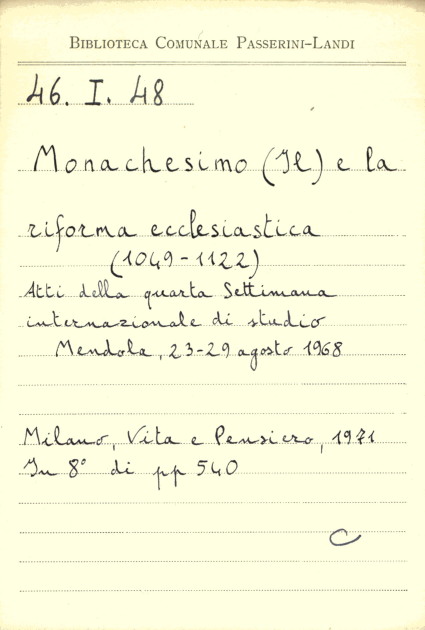 BIBLIOTECA COMUNALE PASSERINI-LANDI
46. I. 48
Monachesimo (Il) e la
riforma ecclesiastica
(1049-1122)
Atti della quarta Settimana
internazionale di studio
Mendola, 23-29 agosto 1968
Milano, Vita e Pensiero, 1971
In 8° di pp 540
C